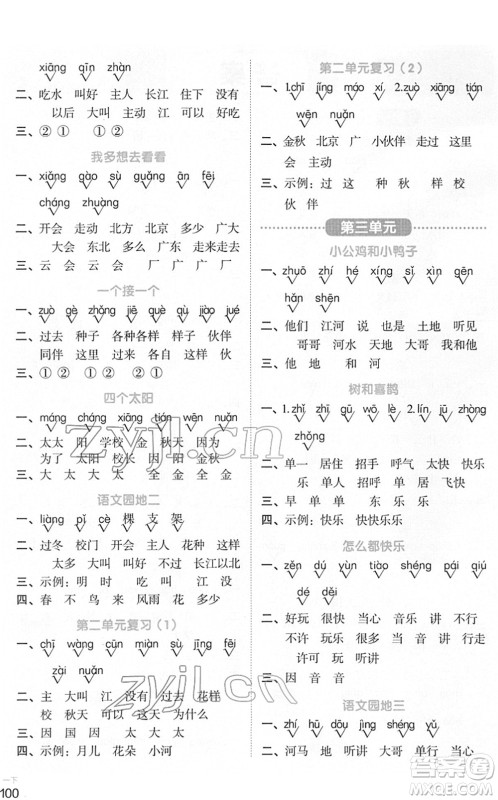 xiāng qīn zhàn
二、吃水 叫好 主人 长江 住下 没有
以后 大叫 主动 江 可以 好吃
三、② ① ① ②
我多想去看看
一、xiǎng qào sù guǎng ān fēi
cháng zhuàng
二、开会 走动 北方 北京 多少 广大
大方 东北 多么 广东 走来走去
三、云 会 会 云 厂 广 广 厂
一个接一个
一、zuò gè zhǒng jiē què qù jiào jué
二、过去 种子 各种各样 这样 伙伴
同伴 这里 这些 花样 一伙
三、① ② ① ②
四个太阳
一、máng cháng xiāng tián wēn nuǎn
二、太太 阳 学校 金 秋天 因为
为了 太阳 校长 因 阳 金秋
三、大 太 大 太 全 金 全 金
语文园地二
一、liàng pǐ cì 棵 支 架
二、过冬 校门 开会 主人 花种 这样
太多 大大方方 动人 吃力
三、示例：明 时 吃 叫 江 没
四、春 不 鸟 来 风雨 花 多少
第二单元复习（1）
一、chī wàng cūn miàn sù jīng fēi
zài nuǎn
二、主 大叫 江 没有 过去 花样
校 秋天 可以 这天 为什么
三、因 国 因 太 大 太 大
四、示例：月儿 花朵 小河
第二单元复习（2）
一、1.chī jīng máo xí 2.zuò xiāng tián
wēn nuǎn
二、金秋 北京 广 小伙伴 走过 这里
会 主动
三、示例：过 这 种 秋 样 校
伙 伴
第三单元
小公鸡和小鸭子
一、zhuō zhí hé xíng sǐ xìn qēn
hǎn shēn
二、他们 江河 说 也 土地 听见
哥哥 河水 天地 大哥 我们 他
三、地 他 也 听 叫 吃
树和喜鹊
一、1.zhǐ zhī gū wō 2.lín jū zhāo hū
zhǒng
二、单一 居住 招手 呼气 太快 快乐
乐乐 单独 快快乐乐
三、早 单 单 草 东 乐 乐
四、示例：快乐 快快乐乐
怎么都快乐
一、zěn dú yíng zhuō shéng pái qiú
yóu
二、好玩 很好 当心 音乐 讲 行走
讲讲 非常 许多 音 当 行动
许可 玩 听讲
三、因 音 音
语文园地三
一、zhí hū dōu jìng shéng yóu
二、河马 地 听讲 大哥 单 当心
一下
100